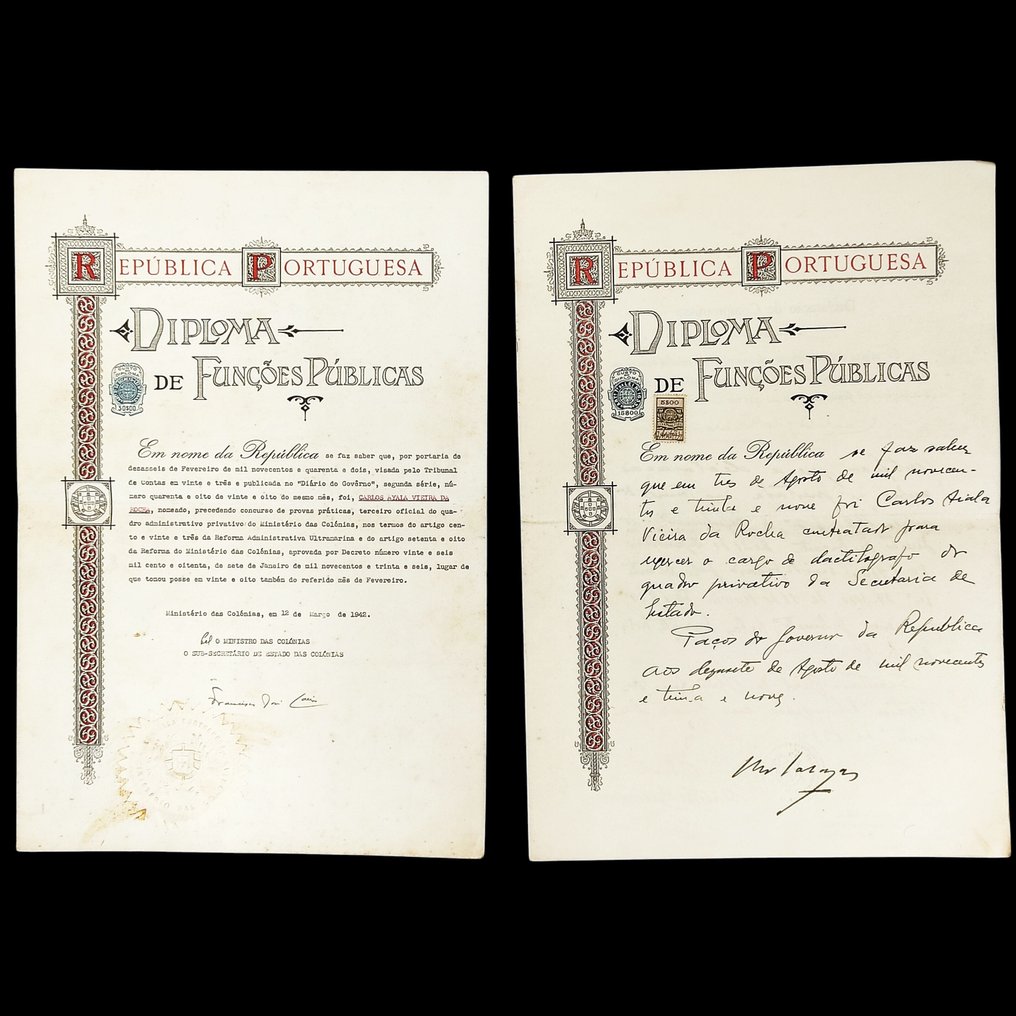 REPÚBLICA PORTUGUESA
DIPLOMA
DE FUNÇÕES PÚBLICAS
30$00
Em nome da República se faz saber que, por portaria de
desasseis de Fevereiro de mil novecentos e quarenta e dois, visada pelo Tribunal
de Contas em vinte e três e publicada no "Diário do Govêrno", segunda série, nú-
mero quarenta e oito de vinte e oito do mesmo mês, foi, CARLOS AYALA VIEIRA DA
ROCHA, nomeado, precedendo concurso de provas práticas, terceiro oficial do qua-
dro administrativo privativo do Ministério das Colónias, nos termos do artigo cen-
to e vinte e três da Reforma Administrativa Ultramarina e do artigo setenta e oito
da Reforma do Ministério das Colónias, aprovada por Decreto número vinte e seis
mil cento e oitenta, de sete de Janeiro de mil novecentos e trinta e seis, lugar de
que tomou posse em vinte e oito também do referido mês de Fevereiro.
Ministério das Colónias, em 12 de Março de 1942.
O MINISTRO DAS COLÓNIAS
O SUB-SECRETÁRIO DE ESTADO DAS COLÓNIAS
Francisco José
REPÚBLICA PORTUGUESA
DIPLOMA
DE FUNÇÕES PÚBLICAS
15$00
5$00
Em nome da República se faz saber
que em tres de Agosto de mil novecen-
tos e trinta e nove foi Carlos Aiala
Vieira da Rocha contratado para
exercer o cargo de dactilografo do
quadro privativo da Secretaria de
Estado.
Paços do Governo da Republica
aos dezassete de Agosto de mil novecentos
e trinta e nove.